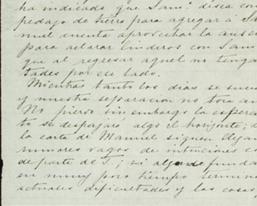 ha indicado que Sam! desea con
pedazo de tierra para agregar á
mul cuenta aprovechar la ausen
para aclarar linderos con Sam
que al regresar aquel no tenga
tades por ese lado.
Mientras tanto los dias se suce
y nuestra separacion no
No pierdo sin embargo la espera
te se despeje algo el horizonte; d
la carta de Manuel siguen
rumores vagos de intenciones
de parte de S.; si algo
en muy poco tiempo termin
actuales dificultades y las cosas